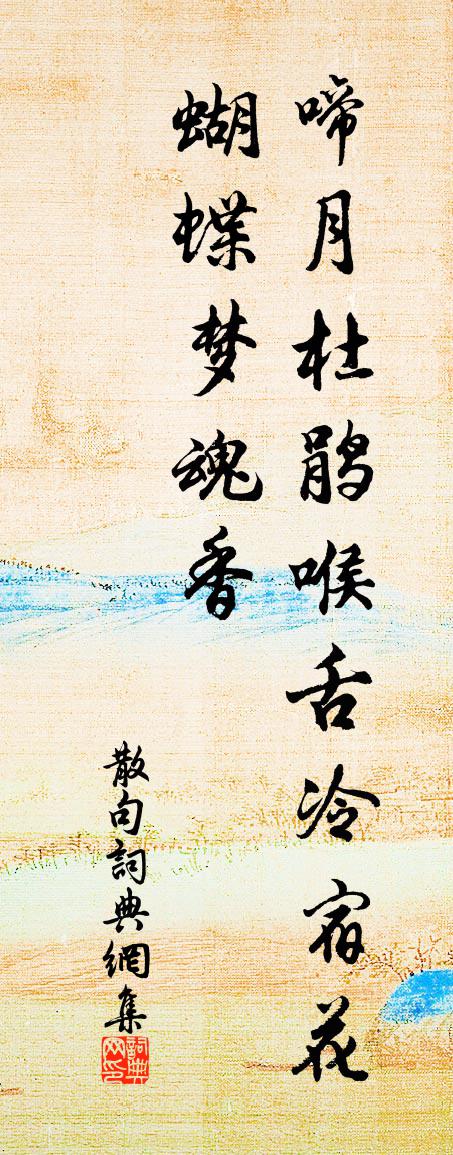 啼月杜鹃喉舌冷宿花
蝴蝶梦魂香
散句詞典網集
詞典网印